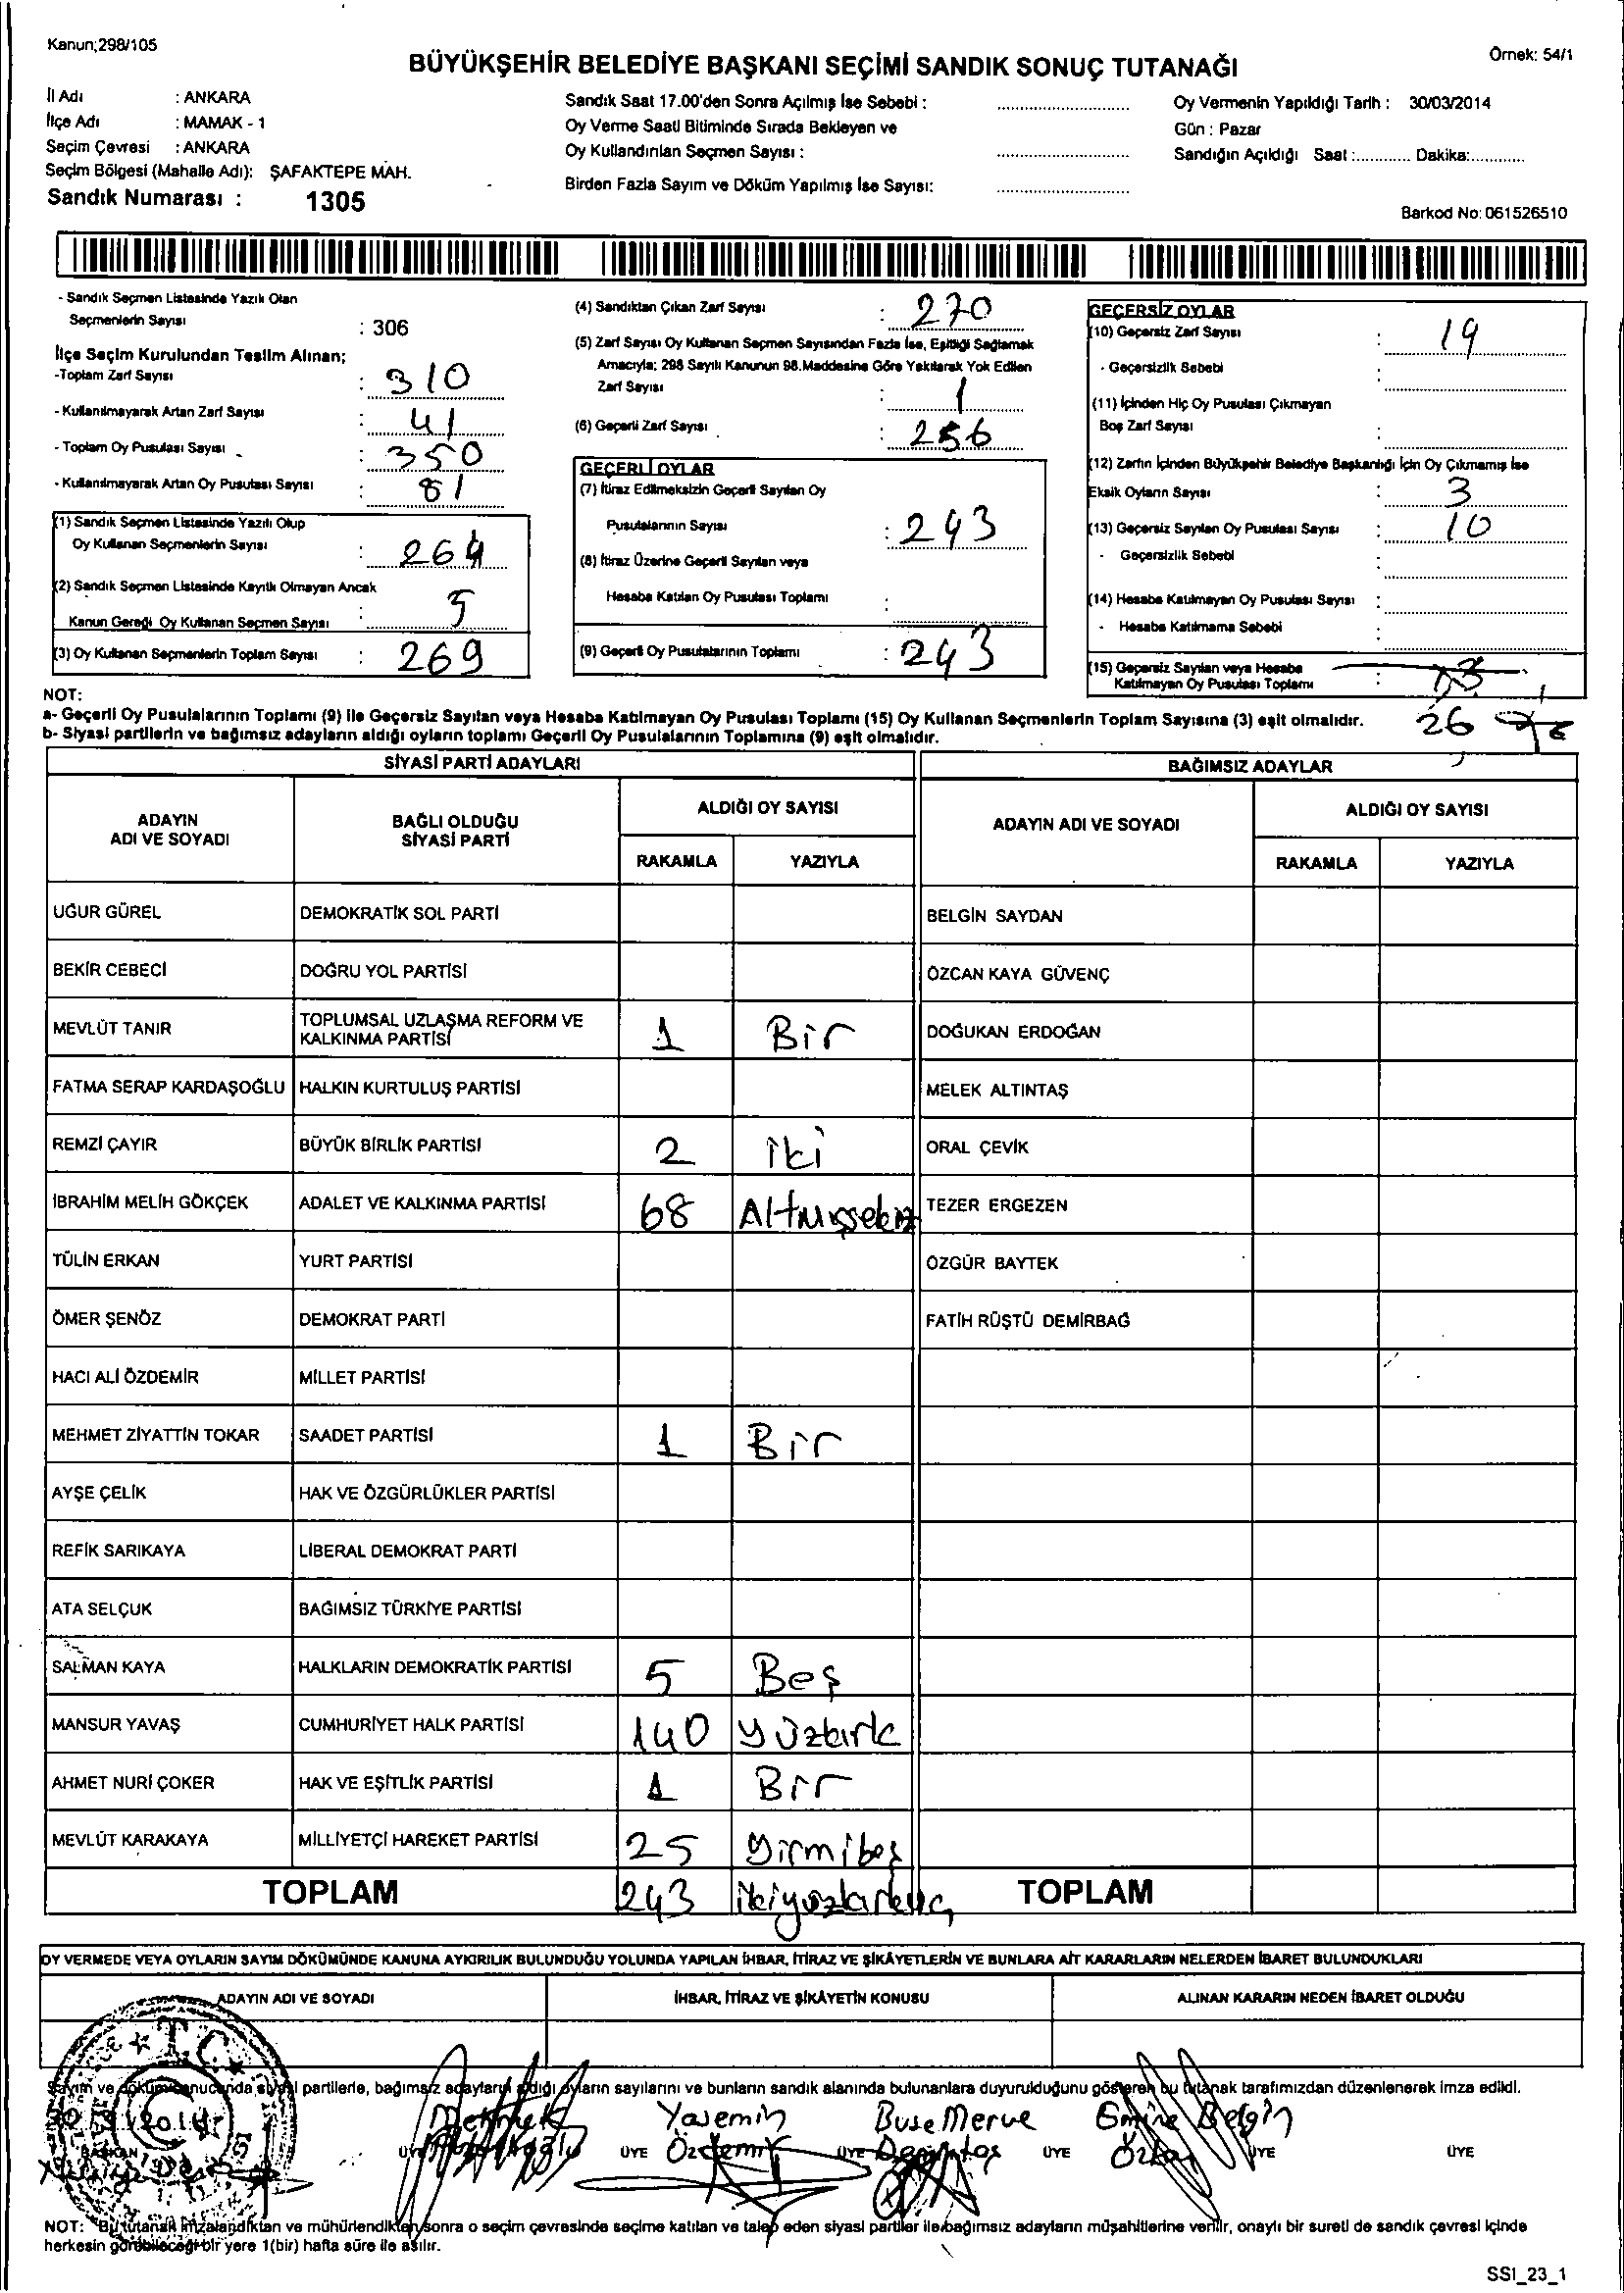 Kanun;298/105
BÜYÜKŞEHİR BELEDİYE BAŞKANI SEÇİMİ SANDIK SONUÇ TUTANAĞI
Örnek: 54/1
İl Adı : ANKARA
İlçe Adı : MAMAK - 1
Seçim Çevresi : ANKARA
Seçim Bölgesi (Mahalle Adı): ŞAFAKTEPE MAH.
Sandık Numarası : 1305
Sandık Saat 17.00'den Sonra Açılmış İse Sebebi :
Oy Verme Saati Bitiminde Sırada Bekleyen ve
Oy Kullandırılan Seçmen Sayısı :
Birden Fazla Sayım ve Döküm Yapılmış İse Sayısı:
Oy Vermenin Yapıldığı Tarih : 30/03/2014
Gün : Pazar
Sandığın Açıldığı Saat :............ Dakika:............
Barkod No: 061526510
- Sandık Seçmen Listesinde Yazılı Olan
Seçmenlerin Sayısı : 306
İlçe Seçim Kurulundan Teslim Alınan;
-Toplam Zarf Sayısı : 310
- Kullanılmayarak Artan Zarf Sayısı : 41
- Toplam Oy Pusulası Sayısı : 350
- Kullanılmayarak Artan Oy Pusulası Sayısı : 81
(1) Sandık Seçmen Listesinde Yazılı Olup
Oy Kullanan Seçmenlerin Sayısı : 264
(2) Sandık Seçmen Listesinde Kayıtlı Olmayan Ancak
Kanun Gereği Oy Kullanan Seçmen Sayısı : 5
(3) Oy Kullanan Seçmenlerin Toplam Sayısı : 269
(4) Sandıktan Çıkan Zarf Sayısı : 270
(5) Zarf Sayısı Oy Kullanan Seçmen Sayısından Fazla İse, Eşitliği Sağlamak
Amacıyla; 298 Sayılı Kanunun 98.Maddesine Göre Yakılarak Yok Edilen
Zarf Sayısı : 1
(6) Geçerli Zarf Sayısı : 256
GEÇERLİ OYLAR
(7) İtiraz Edilmeksizin Geçerli Sayılan Oy
Pusulalarının Sayısı : 243
(8) İtiraz Üzerine Geçerli Sayılan veya
Hesaba Katılan Oy Pusulası Toplamı :
(9) Geçerli Oy Pusulalarının Toplamı : 243
GEÇERSİZ OYLAR
(10) Geçersiz Zarf Sayısı : 19
- Geçersizlik Sebebi :
(11) İçinden Hiç Oy Pusulası Çıkmayan
Boş Zarf Sayısı :
(12) Zarfın İçinden Büyükşehir Belediye Başkanlığı İçin Oy Çıkmamış İse
Eksik Oyların Sayısı : 3
(13) Geçersiz Sayılan Oy Pusulası Sayısı : 10
- Geçersizlik Sebebi :
(14) Hesaba Katılmayan Oy Pusulası Sayısı :
- Hesaba Katılmama Sebebi :
(15) Geçersiz Sayılan veya Hesaba
Katılmayan Oy Pusulası Toplamı : 13
26
NOT:
a- Geçerli Oy Pusulalarının Toplamı (9) ile Geçersiz Sayılan veya Hesaba Katılmayan Oy Pusulası Toplamı (15) Oy Kullanan Seçmenlerin Toplam Sayısına (3) eşit olmalıdır.
b- Siyasi partilerin ve bağımsız adayların aldığı oyların toplamı Geçerli Oy Pusulalarının Toplamına (9) eşit olmalıdır.
SİYASİ PARTİ ADAYLARI BAĞIMSIZ ADAYLAR
ADAYIN ADI VE SOYADI BAĞLI OLDUĞU SİYASİ PARTİ ALDIĞI OY SAYISI ADAYIN ADI VE SOYADI ALDIĞI OY SAYISI
RAKAMLA YAZIYLA RAKAMLA YAZIYLA
UĞUR GÜREL DEMOKRATİK SOL PARTİ BELGİN SAYDAN
BEKİR CEBECİ DOĞRU YOL PARTİSİ ÖZCAN KAYA GÜVENÇ
MEVLÜT TANIR TOPLUMSAL UZLAŞMA REFORM VE KALKINMA PARTİSİ 1 Bir DOĞUKAN ERDOĞAN
FATMA SERAP KARDAŞOĞLU HALKIN KURTULUŞ PARTİSİ MELEK ALTINTAŞ
REMZİ ÇAYIR BÜYÜK BİRLİK PARTİSİ 2 iki ORAL ÇEVİK
İBRAHİM MELİH GÖKÇEK ADALET VE KALKINMA PARTİSİ 68 Altmışsekiz TEZER ERGEZEN
TÜLİN ERKAN YURT PARTİSİ ÖZGÜR BAYTEK
ÖMER ŞENÖZ DEMOKRAT PARTİ FATİH RÜŞTÜ DEMİRBAĞ
HACI ALİ ÖZDEMİR MİLLET PARTİSİ
MEHMET ZİYATTİN TOKAR SAADET PARTİSİ 1 Bir
AYŞE ÇELİK HAK VE ÖZGÜRLÜKLER PARTİSİ
REFİK SARIKAYA LİBERAL DEMOKRAT PARTİ
ATA SELÇUK BAĞIMSIZ TÜRKİYE PARTİSİ
SALMAN KAYA HALKLARIN DEMOKRATİK PARTİSİ 5 Beş
MANSUR YAVAŞ CUMHURİYET HALK PARTİSİ 140 yüzkırk
AHMET NURİ ÇOKER HAK VE EŞİTLİK PARTİSİ 1 Bir
MEVLÜT KARAKAYA MİLLİYETÇİ HAREKET PARTİSİ 25 yirmibeş
TOPLAM 243 ikiyüzkırküç TOPLAM
OY VERMEDE VEYA OYLARIN SAYIM DÖKÜMÜNDE KANUNA AYKIRILIK BULUNDUĞU YOLUNDA YAPILAN İHBAR, İTİRAZ VE ŞİKÂYETLERİN VE BUNLARA AİT KARARLARIN NELERDEN İBARET BULUNDUKLARI
ADAYIN ADI VE SOYADI İHBAR, İTİRAZ VE ŞİKÂYETİN KONUSU ALINAN KARARIN NEDEN İBARET OLDUĞU
T.C.
Sayım ve döküm sonucunda siyasi partilerle, bağımsız adayların aldığı oyların sayılarını ve bunların sandık alanında bulunanlara duyurulduğunu gösteren bu tutanak tarafımızdan düzenlenerek imza edildi.
Yasemin Buse Merve Emine Belgin
BAŞKAN ÜYE ÜYE Özdemir ÜYE ÜYE ÜYE ÜYE
NOT: Bu tutanak imzalandıktan ve mühürlendikten sonra o seçim çevresinde seçime katılan ve talep eden siyasi partiler ile bağımsız adayların müşahitlerine verilir, onaylı bir sureti de sandık çevresi içinde
herkesin görebileceği bir yere 1(bir) hafta süre ile asılır.
SSI_23_1